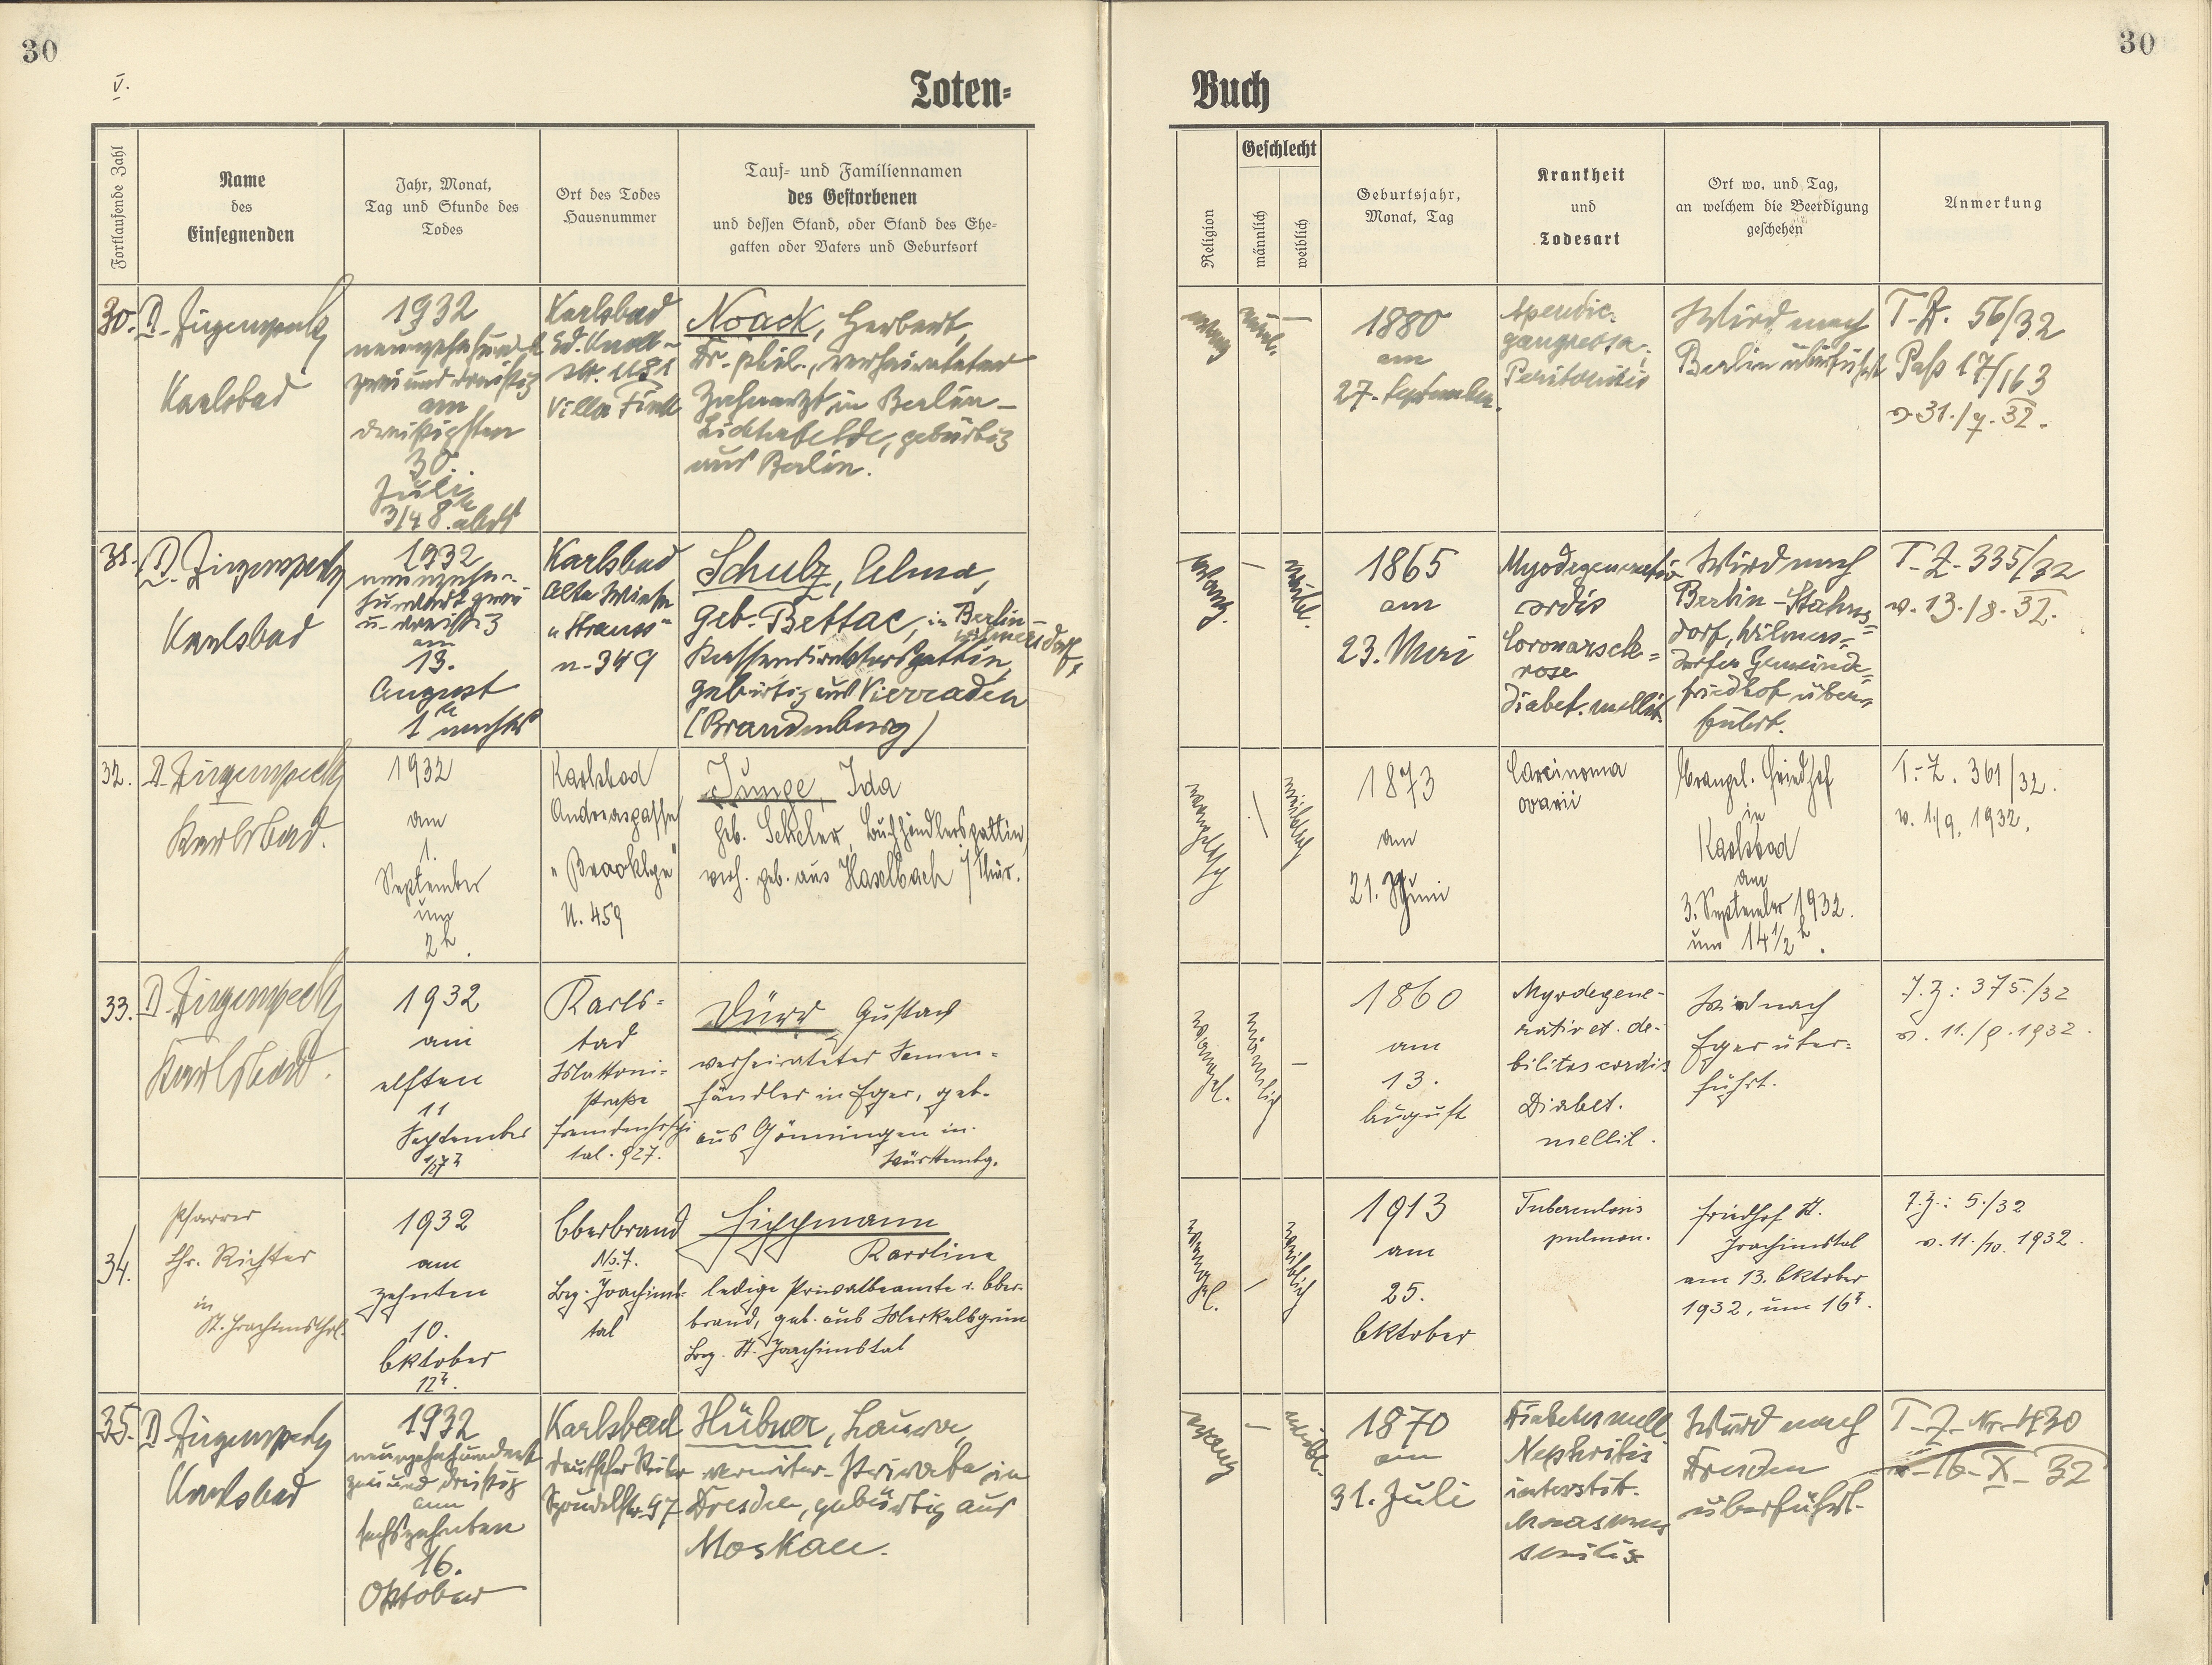 30
30
V.
Toten=
Buch
Fortlaufende Zahl
Name
des
Einsegnenden
Jahr, Monat,
Tag und Stunde des
Todes
Ort des Todes
Hausnummer
Tauf= und Familiennamen
des Gestorbenen
und dessen Stand, oder Stand des Ehe=
gatten oder Vaters und Geburtsort
Religion
Geschlecht
männlich
weiblich
Geburtsjahr,
Monat, Tag
Krankheit
und
Todesart
Ort wo, und Tag,
an welchem die Beerdigung
geschehen
Anmerkung
30.
Karlsbad
1932
neunzehnhundert
zweiunddreißig
am
dreißigsten
30.
Juli
3/4 8 h abds
Karlsbad
Villa
Noack, Herbert,
Dr. phil., verheirateter
Zahnarzt in Berlin-
Lichterfelde, gebürtig
aus Berlin.
evang
männl.
—
1880
am
27. September.
Apendic.
gangreosa.
Peritonitis
Wird nach
Berlin überführt
T.Z. 56/32
Paß 17/163
v. 31./7. 32.
31.
Karlsbad
1932
neunzehn-
hundert zwei
u. dreißig
am
13.
August
1 h nachts
Karlsbad
Alte Wiese
"Strauss"
n. 349
Schulz, Alma,
geb. Bettac, in Berlin-
Wilmersdorf,
Kassendirektorsgattin,
gebürtig aus Vierraden
(Brandenburg)
evang.
—
weibl.
1865
am
23. Mai
Myodegeneratio
cordis
Coronarskle=
rose
Diabet. mellit.
Wird nach
Berlin-Stahns=
dorf, Wilmers=
dorfer Gemeinde=
friedhof über=
führt.
T.Z. 335/32
v. 13./8. 32.
32.
Karlsbad.
1932
am
1.
September
um
2 h.
Karlsbad
Andreasgasse
"Brooklyn"
N. 459
Junge, Ida
geb. Scheler, Buchhändlersgattin,
verh. geb. aus Haselbach / Thür.
evangelisch
—
weiblich
1873
am
21. Juni
Carcinoma
ovarii
Evangel. Friedhof
in
Karlsbad
am
3. September 1932.
um 14 1/2 h.
T.-Z. 361/32.
v. 1/9. 1932.
33.
Karlsbad.
1932
am
elften
11
September
1/2 7 h
Karls=
bad
Mattoni-
straße
Fremdenhospi
tal. 927.
Dürr Gustav
verheirateter Samen-
händler in Eger, geb.
aus Gönningen in
Württembg.
evangel.
männlich
—
1860
am
13.
August
Myodegene-
ratio et. de-
bilitas cordis
Diabet.
mellit.
Wird nach
Eger über=
führt.
T.Z: 375./32
v. 11./9. 1932.
34.
Pfarrer
Chr. Richter
in
St. Joachimsthal.
1932
am
zehnten
10.
Oktober
12 h.
Oberbrand
No. 7.
Bez. Joachims-
tal
Karoline
ledige Privatbeamte v. Ober-
brand, geb. aus Merkelsgrün
Bez. St. Joachimstal
evangel.
—
weiblich
1913
am
25.
Oktober
Tuberculosis
pulmon.
Friedhof St.
Joachimstal
am 13. Oktober
1932, um 16 h.
T.Z.: 5./32
v. 11./10. 1932.
35.
Karlsbad
1932
neunzehnhundert
zweiund dreißig
am
sechszehnten
16.
Oktober
Karlsbad
Hübner, Laura,
Private in
Dresden, gebürtig aus
Moskau.
evang
—
weibl.
1870
am
31. Juli
Diabetes mell
Nephritis
interstit.
Marasmus
senilis
Wird nach
Dresden
überführt.
T.Z. Nr. 430
v. 16. X. 32